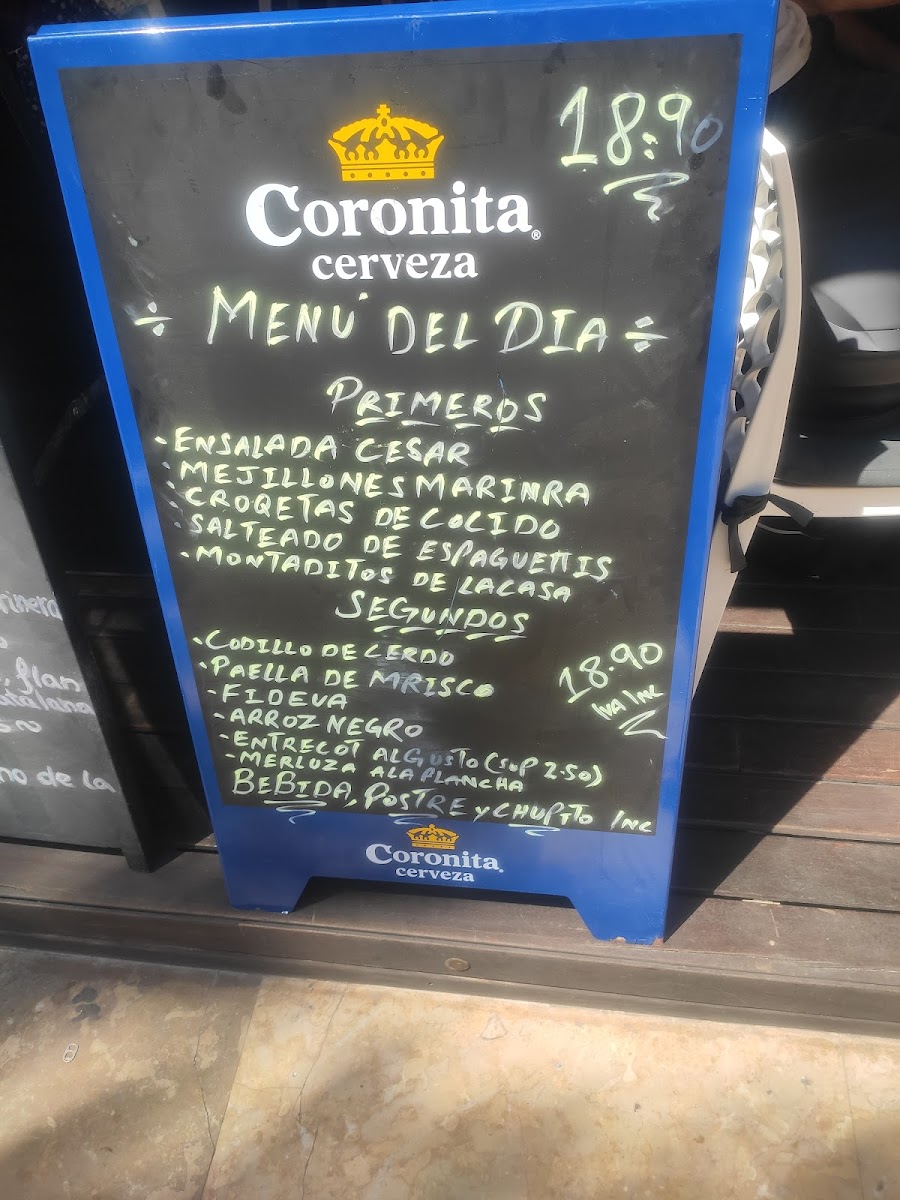 18.90
Coronita
cerveza
÷ MENÚ DEL DIA ÷
PRIMEROS
- ENSALADA CESAR
- MEJILLONES MARINRA
- CROQETAS DE COCIDO
- SALTEADO DE ESPAGUETTIS
- MONTADITOS DE LACASA
SEGUNDOS
- CODILLO DE CERDO
- PAELLA DE MRISCO
- FIDEVA
- ARROZ NEGRO
- ENTRECOT AL GUSTO (SUP 2.50)
- MERLUZA A LA PLANCHA
18.90
IVA INC
BEBIDA, POSTRE y CHUPITO INC
Coronita
cerveza
flan
no de la